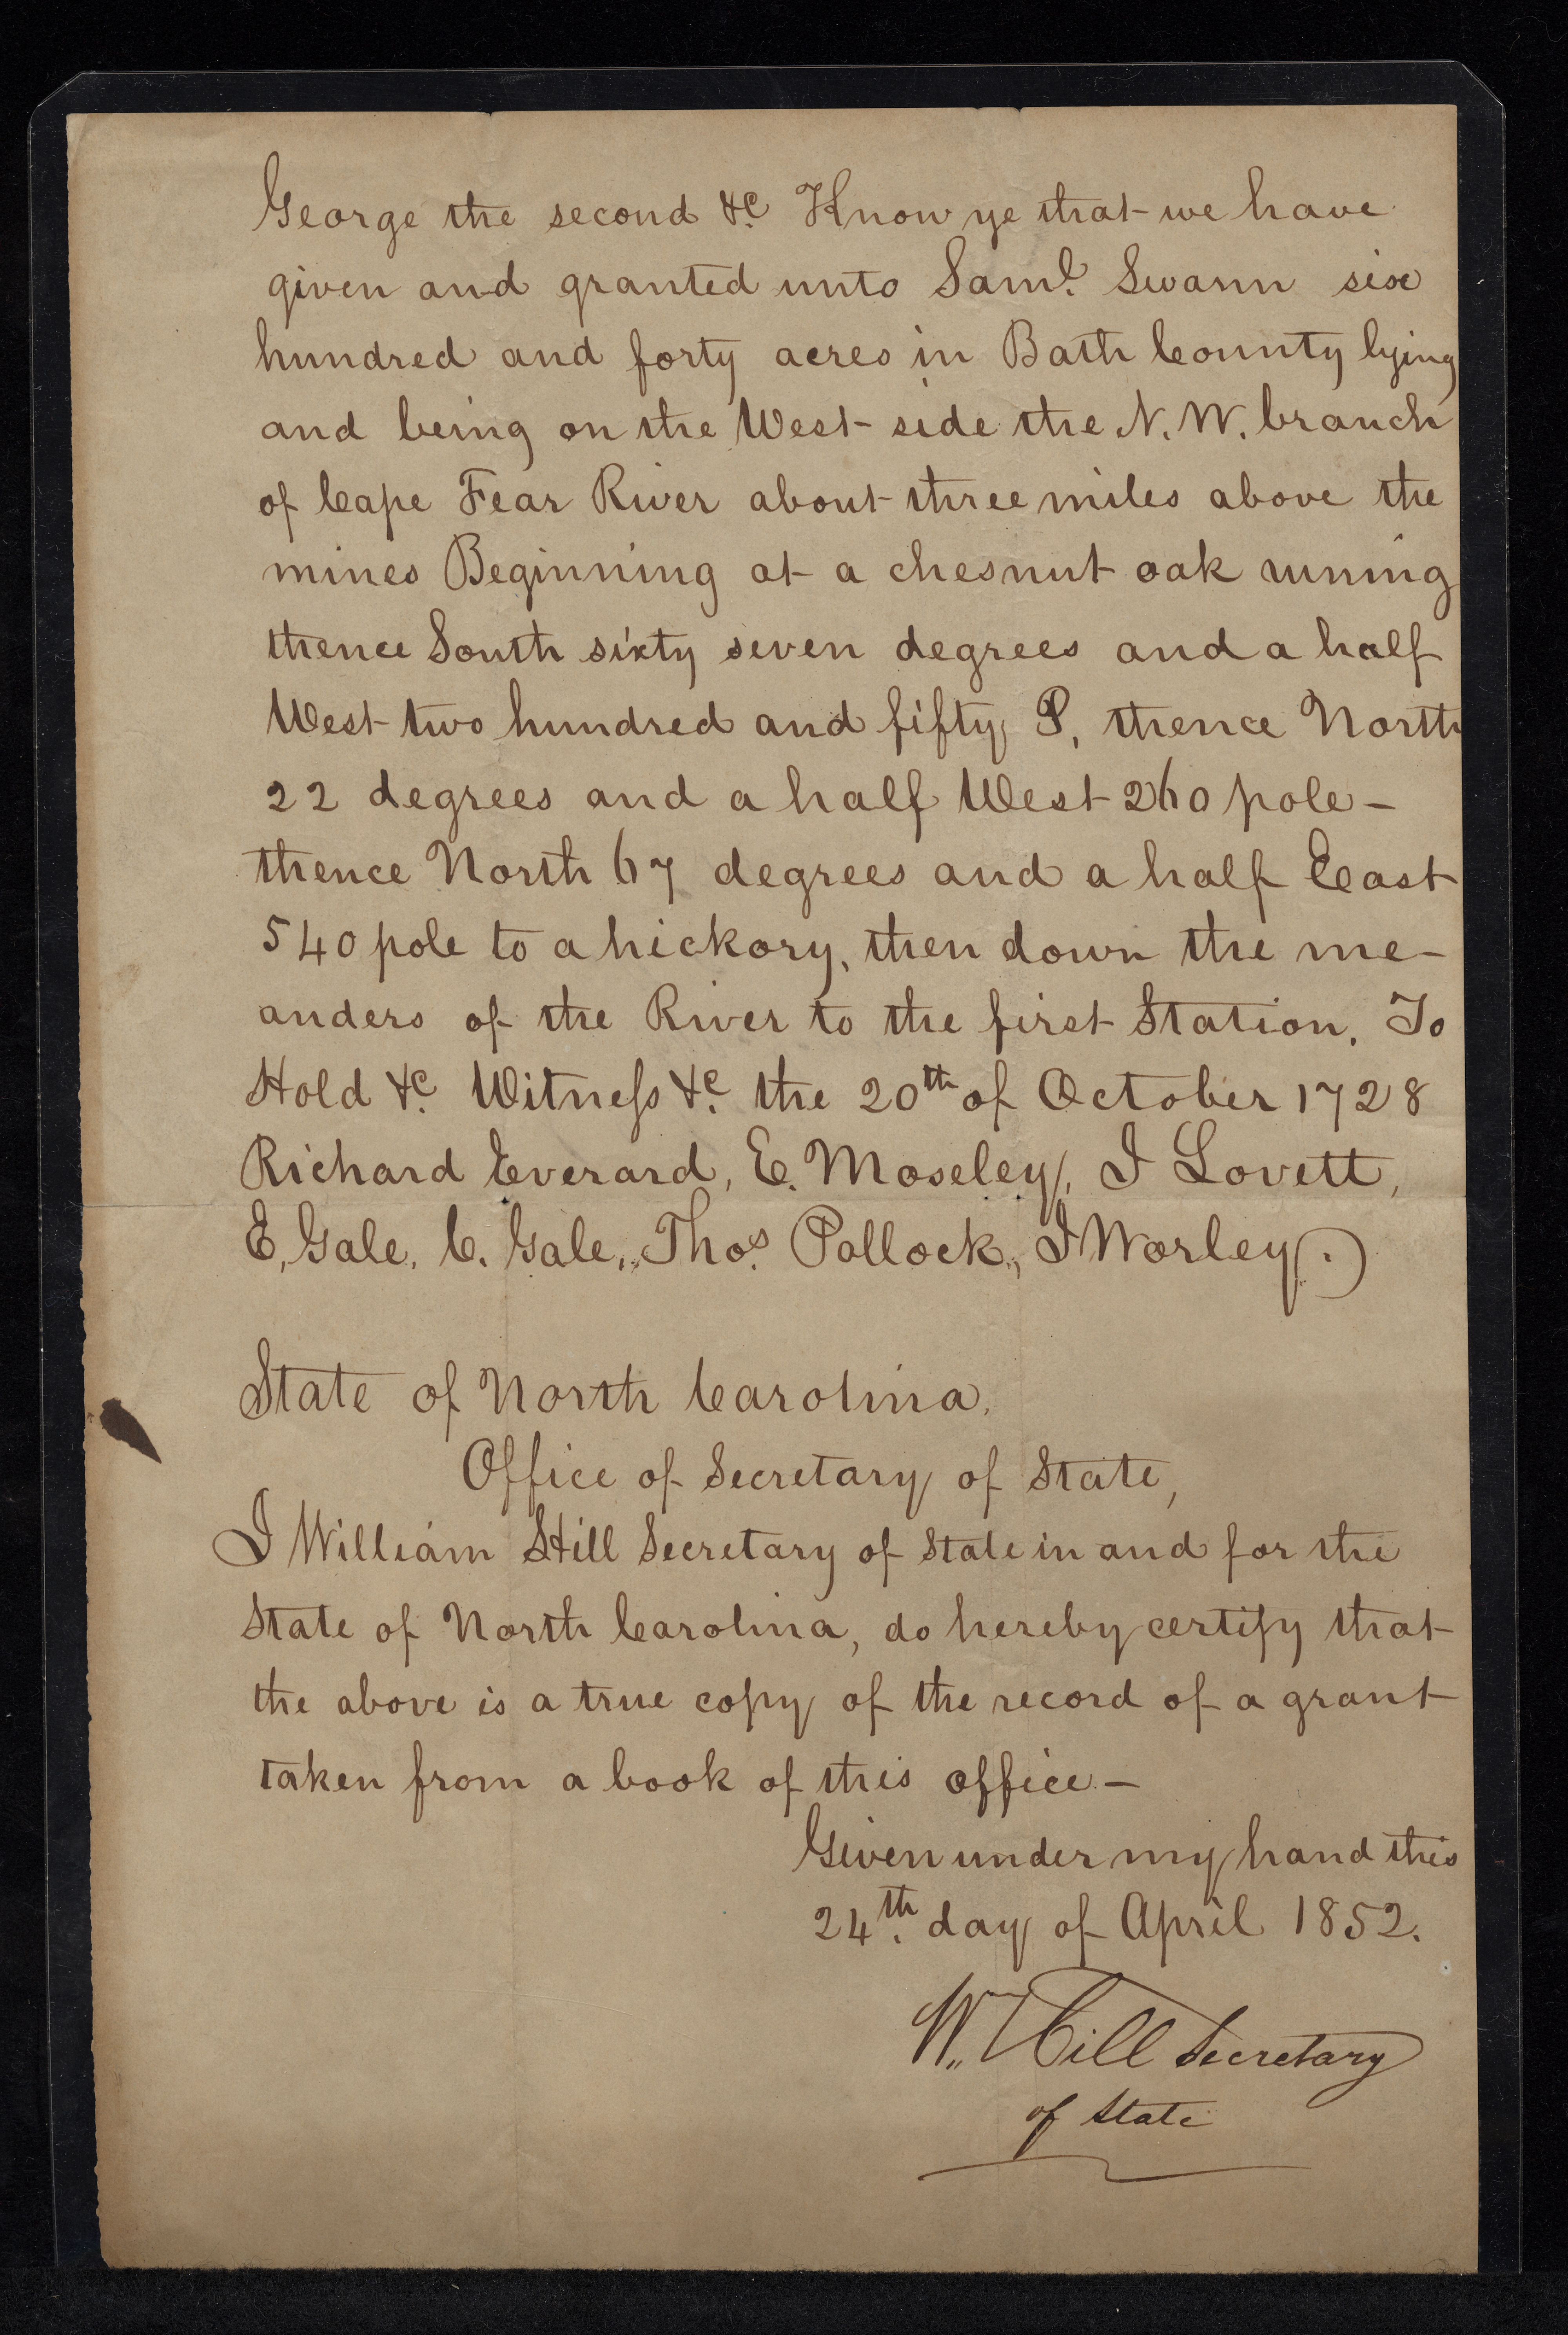 George the second &c. Know ye that we have
given and granted unto Saml. Swann six
hundred and forty acres in Bath County lying
and being on the West side the N. W. branch
of Cape Fear River about three miles above the
mines Beginning at a chesnut oak runing
thence South sixty seven degrees and a half
West two hundred and fifty P, thence North
22 degrees and a half West 260 pole –
thence North 67 degrees and a half East
540 pole to a hickory, then down the me-
anders of the River to the first Station, To
Hold &c. Witness &c. the 20th of October 1728
Richard Everard, E. Moseley, J Lovett,
E, Gale, C. Gale, Thos. Pollock, J Worley.)
State of North Carolina,
Office of Secretary of State,
I William Hill Secretary of State in and for the
State of North Carolina, do hereby certify that
the above is a true copy of the record of a grant
taken from a book of this office –
Given under my hand this
24th. day of April 1852.
W. Hill Secretary
of State